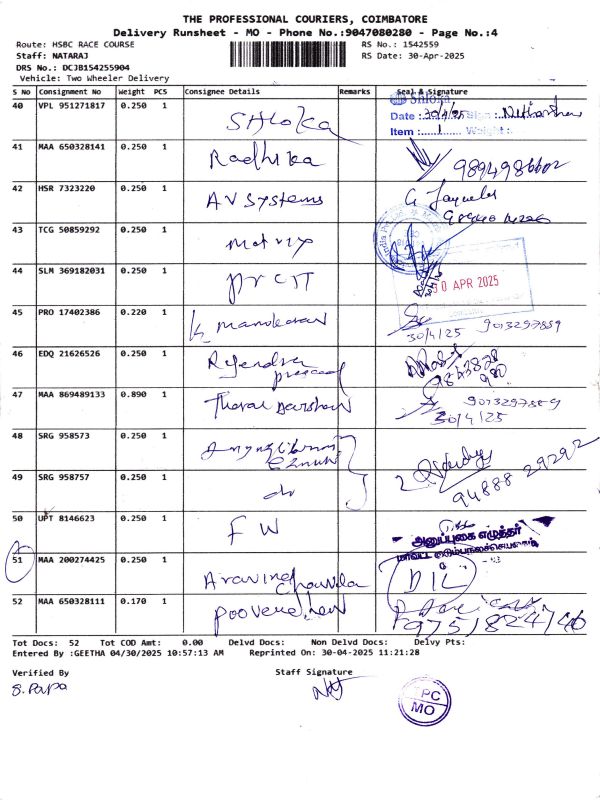 THE PROFESSIONAL COURIERS, COIMBATORE
Delivery Runsheet - MO - Phone No.:9047080280 - Page No.:4
Route: HSBC RACE COURSE RS No.: 1542559
Staff: NATARAJ RS Date: 30-Apr-2025
DRS No.: DCJB154255904
Vehicle: Two Wheeler Delivery
S No Consignment No Weight PCS Consignee Details Remarks Seal & Signature
Shloka
40 VPL 951271817 0.250 1 SHloka Date : 30/4/25 Sign :
Item : 1 Weight :
41 MAA 650328141 0.250 1 Radhika 9894986602
42 HSR 7323220 0.250 1 AV Systems
43 TCG 50859292 0.250 1
44 SLM 369182031 0.250 1 30 APR 2025
45 PRO 17402386 0.220 1 K. Manokaran 30/4/25 9013297859
46 EDQ 21626526 0.250 1 Rajendra prasad
47 MAA 869489133 0.890 1 Tharun Darshan 9013297859
30/4/25
48 SRG 958573 0.250 1
49 SRG 958757 0.250 1 do 94888 29292
50 UPT 8146623 0.250 1 F W
அனுப்புகை எழுத்தர்
51 MAA 200274425 0.250 1 Aravind Chawla DIL
52 MAA 650328111 0.170 1 9751824746
Tot Docs: 52 Tot COD Amt: 0.00 Delvd Docs: Non Delvd Docs: Delvy Pts:
Entered By :GEETHA 04/30/2025 10:57:13 AM Reprinted On: 30-04-2025 11:21:28
Verified By Staff Signature
S. Papa
TPC
MO